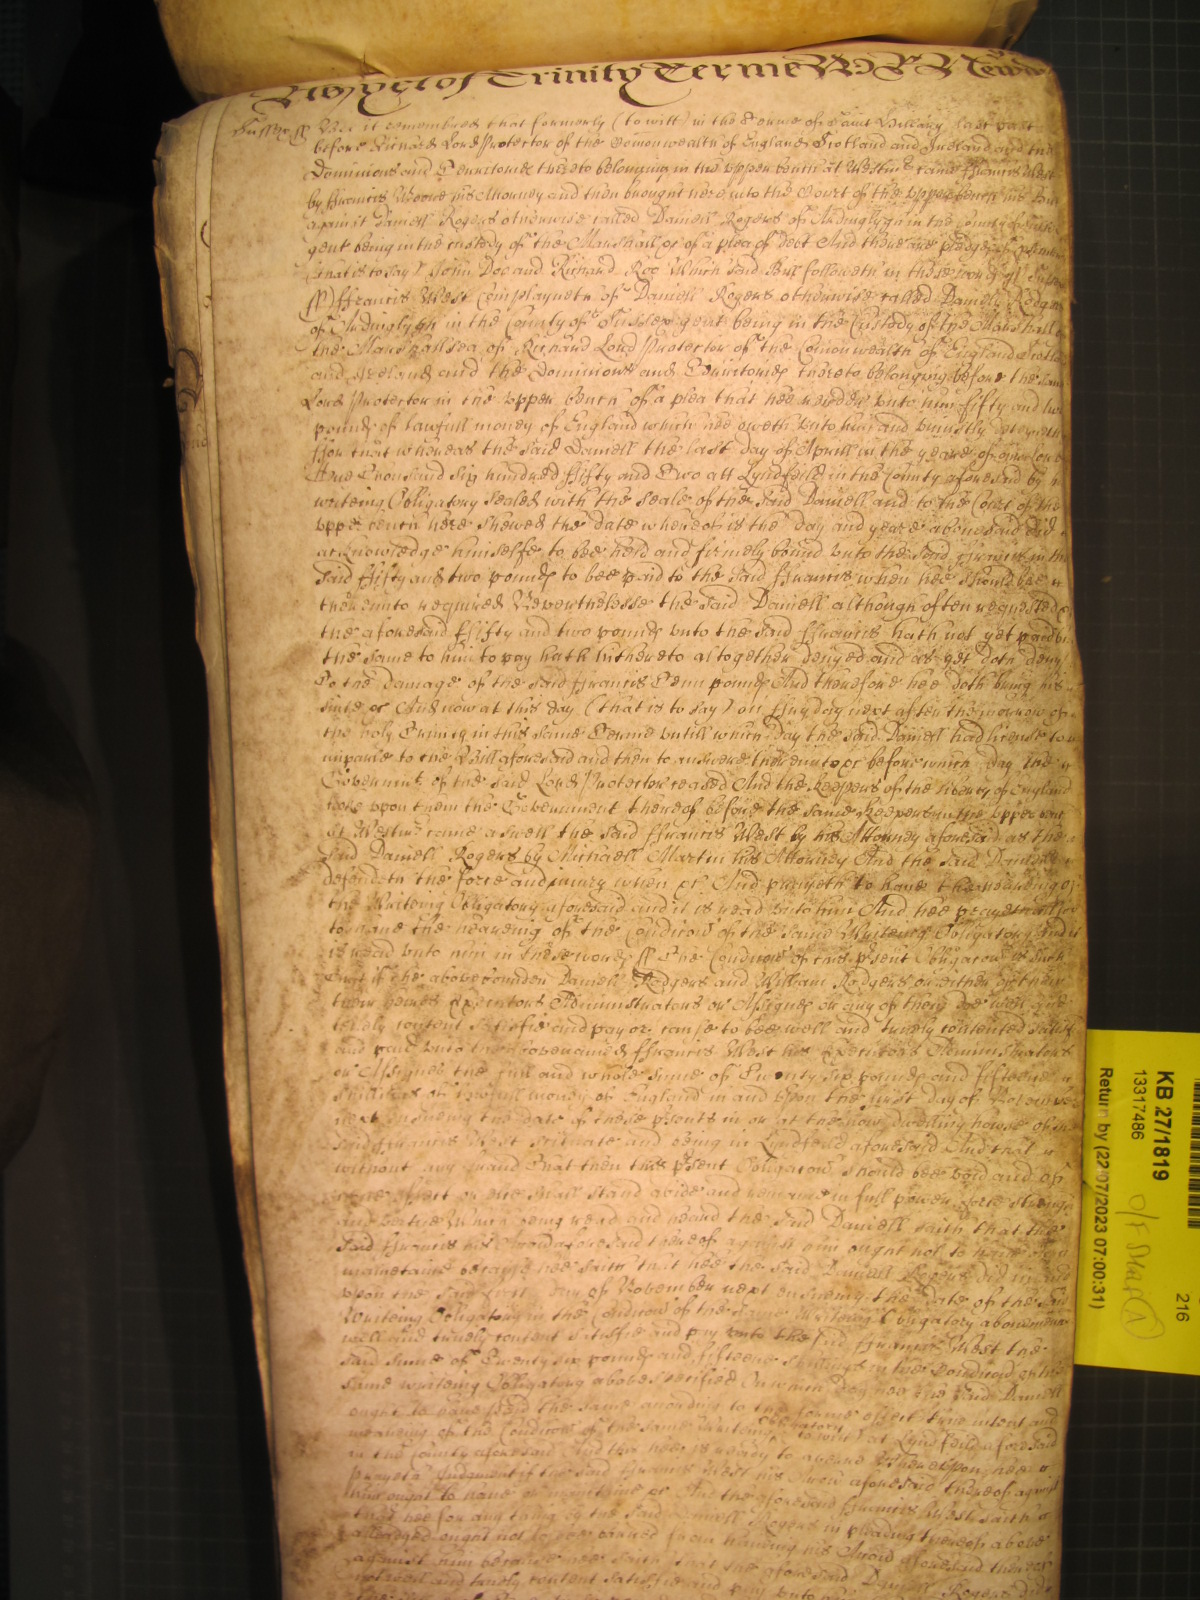 yet of Trinity Terme
Sussex ss Bee it remembred that formerly (to witt) in the Terme of Saint Hillary last past
before Richard Lord Protector of the Comonwealth of England Scotland and Ireland and the
Dominions and Territories thereto belonging in the upper bench at Westmr came Ffrancis West
by Ffrancis Moore his Attorney and then brought here into the Court of the upper bench his Bill
against Daniell Rogers otherwise called Daniell Rogers of Ardinglygh in the County of Sussex
gent being in the custody of the Marshall &c of a plea of debt And there are pledges
(that is to say) John Doe and Richard Roe Which said Bill followeth in these words ss Sussex
ss) Ffrancis West Complayneth of Daniell Rogers otherwise called Daniell Rodgers
of Ardinglygh in the County of Sussex gent being in the Custody of the Marshall of
the Marshallsea of Richard Lord Protector of the Comonwealth of England Scotland
and Ireland and the Dominions and Territories thereto belonging before the same
Lord Protector in the upper bench of a plea that hee render unto him fifty and two
pounds of lawfull money of England which hee oweth unto him and uniustly deteyneth
Ffor that whereas the said Daniell the last day of Aprill in the yeare of our Lord
One Thousand six hundred ffifty and Two att Lyndfeild in the County aforesaid by
writeing Obligatory sealed with the seale of the said Daniell and to the Court of the
upper bench here shewed the date whereof is the day and yeare abovesaid did
acknowledge himselfe to bee held and firmely bound unto the said Ffrancis in the
said ffifty and two pounds to bee paid to the said Ffrancis when hee should bee
thereunto required Neverthelesse the said Daniell although often requested
the aforesaid ffifty and two pounds unto the said Ffrancis hath not yet paid but
the same to him to pay hath hithereto altogether denyed and as yet doth deny
To the damage of the said Ffrancis Tenn pounds And therefore hee doth bring his
suite &c And now at this day (that is to say) on Ffryday next after the morrow of
the holy Trinity in this same Terme untill which day the said Daniell had license to
imparle to the Bill aforesaid and then to answere thereunto &c before which day the
Governmt of the said Lord Protector ceased And the Keepers of the liberty of England
tooke upon them the Government thereof before the same Keepers in the upper bench
at Westmr came aswell the said Ffrancis West by his Attorney aforesaid as the
said Daniell Rogers by Michaell Martin his Attorney And the said Daniell
defendeth the force and iniury when &c And prayeth to have the hearing of
the Writeing Obligatory aforesaid and it is read unto him And hee prayeth
to have the heareing of the Condicon of the same Writeing Obligatory And it
is read unto him in these words ss The Condicon of this psent Obligacon is such
That if the abovebounden Daniell Rodgers and William Rodgers or either of them
their heires Executors Administrators or Assignes or any of them doe well and
truely content satisfie and pay or cause to bee well and truely contented satisfied
and paid unto the abovenamed Ffrancis West his Executors Administrators
or Assignes the full and whole summe of Twenty six pounds and fifteene
shillings of lawfull money of England in and upon the first day of November
next ensuing the date of these psents in or at the now dwelling howse of the
said Ffrancis West scituate and being in Lyndfeild aforesaid And that
without any fraud That then this psent Obligacon should bee void and of
none effect or else shall stand abide and remaine in full power force strength
and vertue Which being read and heard the said Daniell saith that the
said Ffrancis his Accon aforesaid thereof against him ought not to have or
maintaine because hee saith that hee the said Daniell Rogers did in and
upon the said first day of November next ensueing the date of the said
Writeing Obligatory in the Condicon of the same Writeing Obligatory abovemenconed
well and truely content satisfie and pay unto the said Ffrancis West the
said summe of Twenty six pounds and fifteene shillings in the Condicon of the
same writeing Obligatory above specified On which day hee the said Daniell
ought to have paid the same according to the forme effect true intent and
meaneing of the Condicon of the same Writeing Obligatory to witt at Lyndfeild aforesaid
in the County aforesaid And this hee is ready to averre Whereupon hee
prayeth Judgment if the said Ffrancis West his Accon aforesaid thereof against
him ought to have or maintaine &c And the aforesaid Ffrancis West saith
that hee for any thing by the said Daniell Rogers in pleading thereof above
alleadged ought not to bee barred from haveing his Accon aforesaid thereof
against him because hee saith that the aforesaid Daniell Rogers did
not well and truely content satisfie and pay unto
KB 27/1819
13317486
Return by (22/07/2023 07:00:31)
216